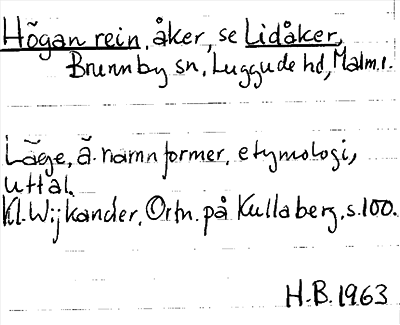 Högan rein, åker, se Lidåker,
Brunnby sn, Luggude hd, Malm.l.
Läge, ä. namnformer, etymologi,
uttal.
Kl. Wijkander, Ortn. på Kullaberg, s.100.
H.B. 1963